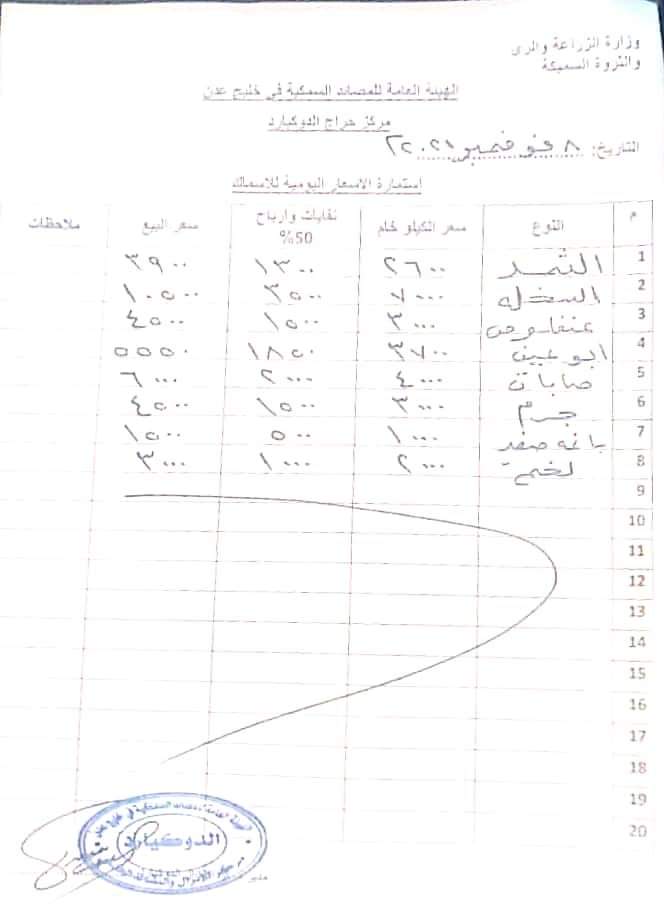 وزارة الزراعة والري
والثروة السمكية
الهيئة العامة للمصائد السمكية في خليج عدن
مركز حراج الدوكيارد
التاريخ: ٨ نوفمبر ٢٠٢١
استمارة الاسعار اليومية للاسماك
م النوع سعر الكيلو خام نفايات وارباح 50% سعر البيع ملاحظات
1 الثمد ٢٦٠٠ ١٣٠٠ ٣٩٠٠
2 السخله ٧٠٠٠ ٣٥٠٠ ١٠٥٠٠
3 عنفلوص ٣٠٠٠ ١٥٠٠ ٤٥٠٠
4 ابو عين ٣٧٠٠ ١٨٥٠ ٥٥٥٠
5 صابات ٤٠٠٠ ٢٠٠٠ ٦٠٠٠
6 جرم ٣٠٠٠ ١٥٠٠ ٤٥٠٠
7 باغه صفد ١٠٠٠ ٥٠٠ ١٥٠٠
8 لخمة ٢٠٠٠ ١٠٠٠ ٣٠٠٠
9
10
11
12
13
14
15
16
17
18
19
20
الهيئة العامة للمصائد السمكية في خليج عدن
الدوكيارد